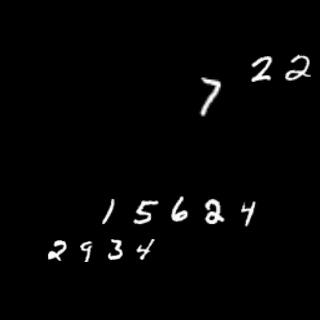 22
7
15624
2934